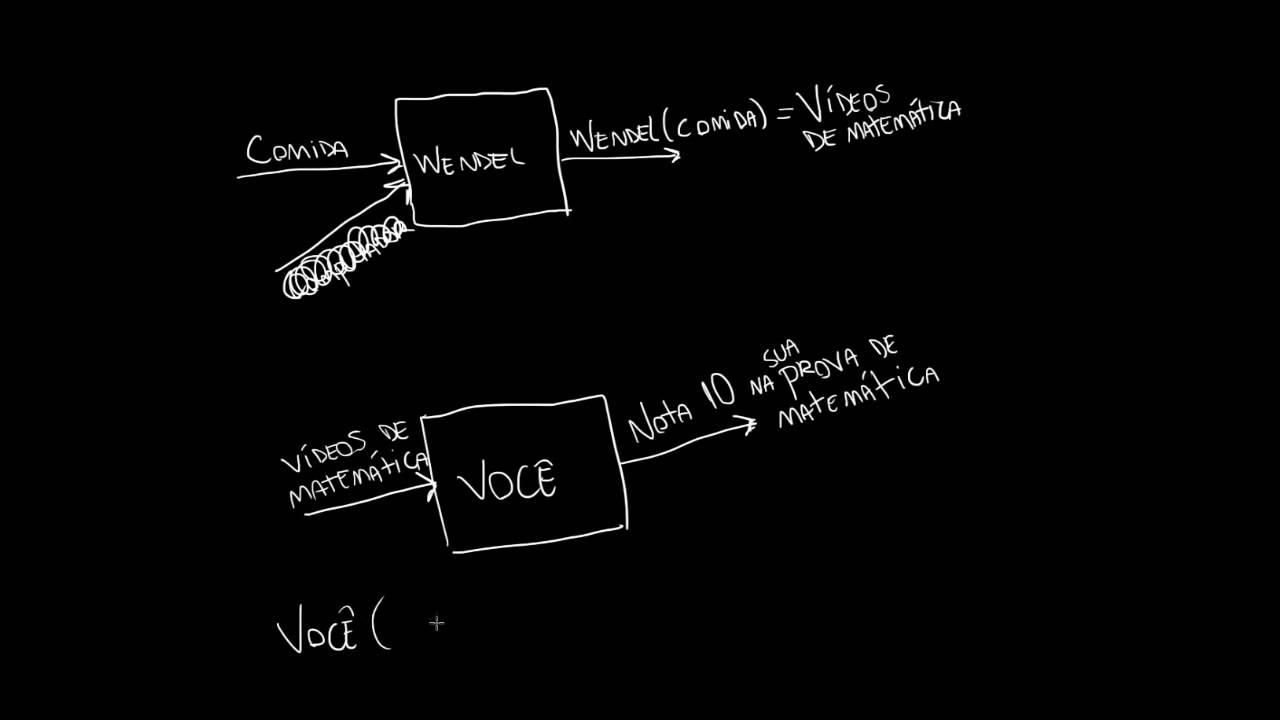 COMIDA
WENDEL
WENDEL(COMIDA) = VÍDEOS
DE MATEMÁTICA
VÍDEOS DE
MATEMÁTICA
VOCÊ
NOTA 10 NA SUA PROVA DE
MATEMÁTICA
VOCÊ (